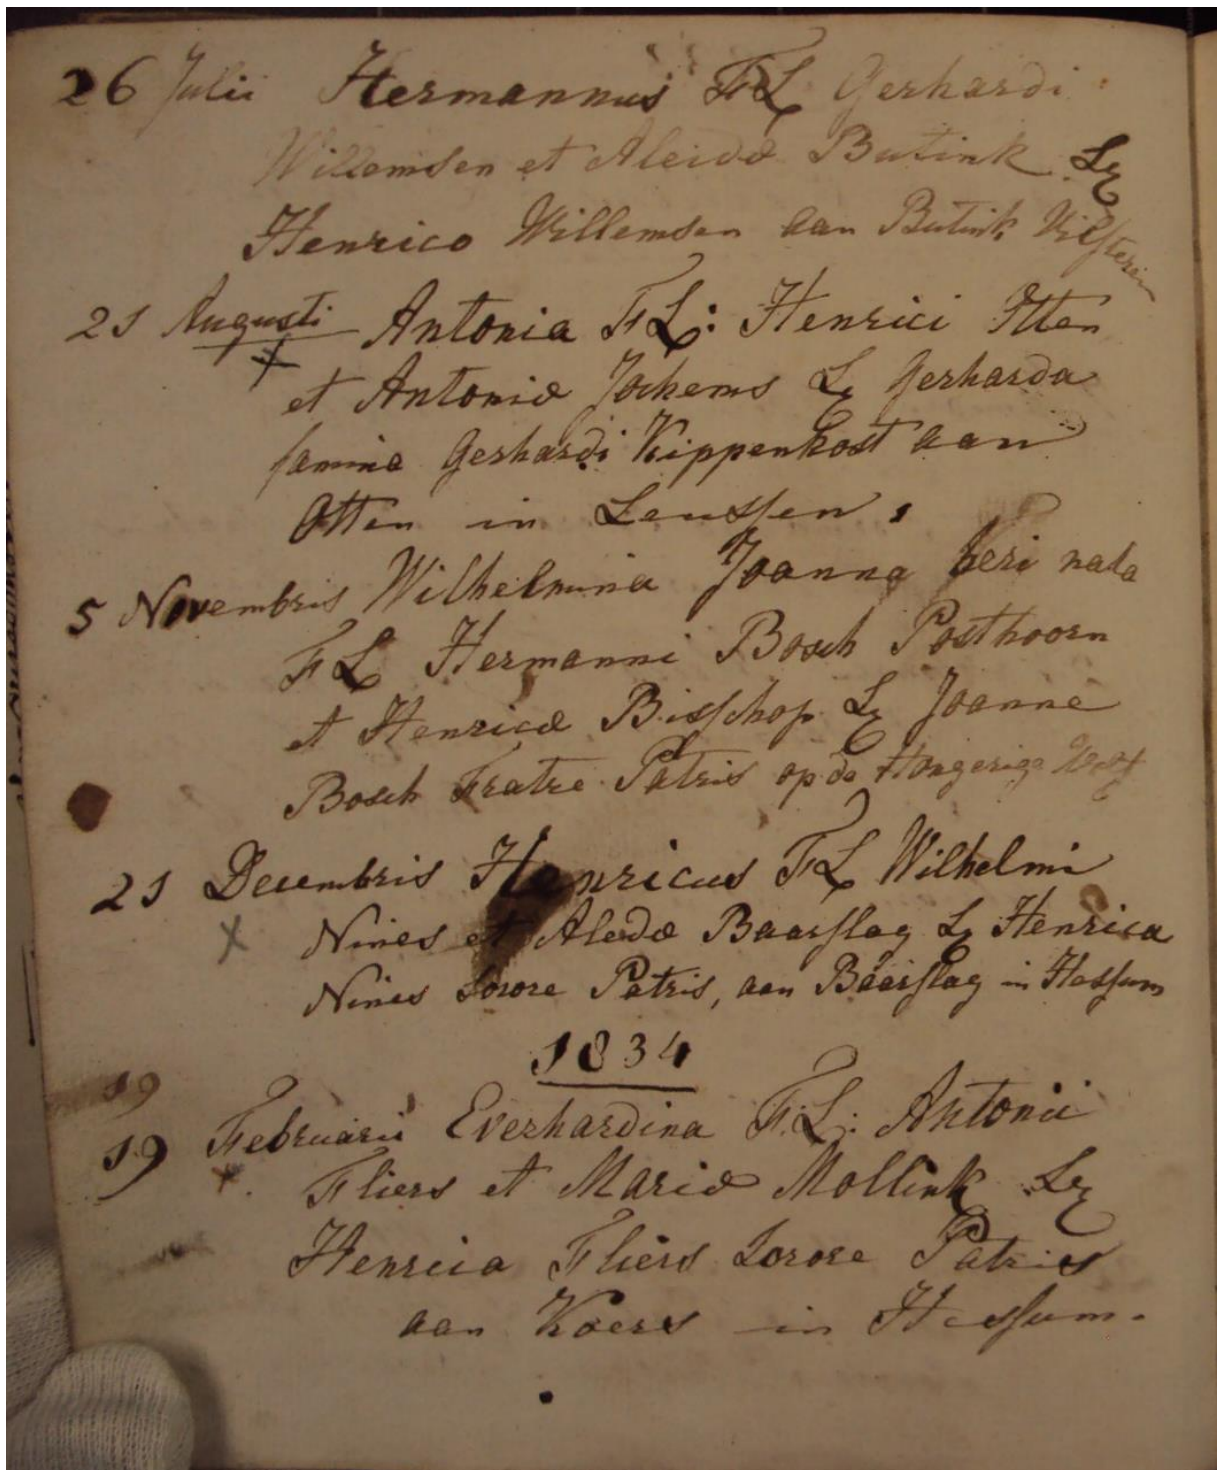 26 Julii Hermannus FL Gerhardi
Willemsen et Aleidæ Butink Lx
Henrico Willemsen aan Butink Vilsteren
21 Augusti Antonia FL: Henrici Otten
et Antoniæ Jochems Lx Gerharda
famina Gerhardi Kippenkost aan
Otten in Leussen,
5 Novembris Wilhelmina Joanna heri nata
FL Hermanni Bosch Posthoorn
et Henricæ Bisschop Lx Joanne
Bosch Fratre Patris op de Hongerige Wolf
21 Decembris Henricus FL Wilhelmi
Nines et Aleidæ Baarslag Lx Henrica
Nines Sorore Patris, aan Baarslag in Hessum
1834
19
19 Februarii Everhardina F.L: Antonii
Fliers et Mariæ Mollink Lx
Henrica Fliers Sorore Patris
aan Koers in Hessum.